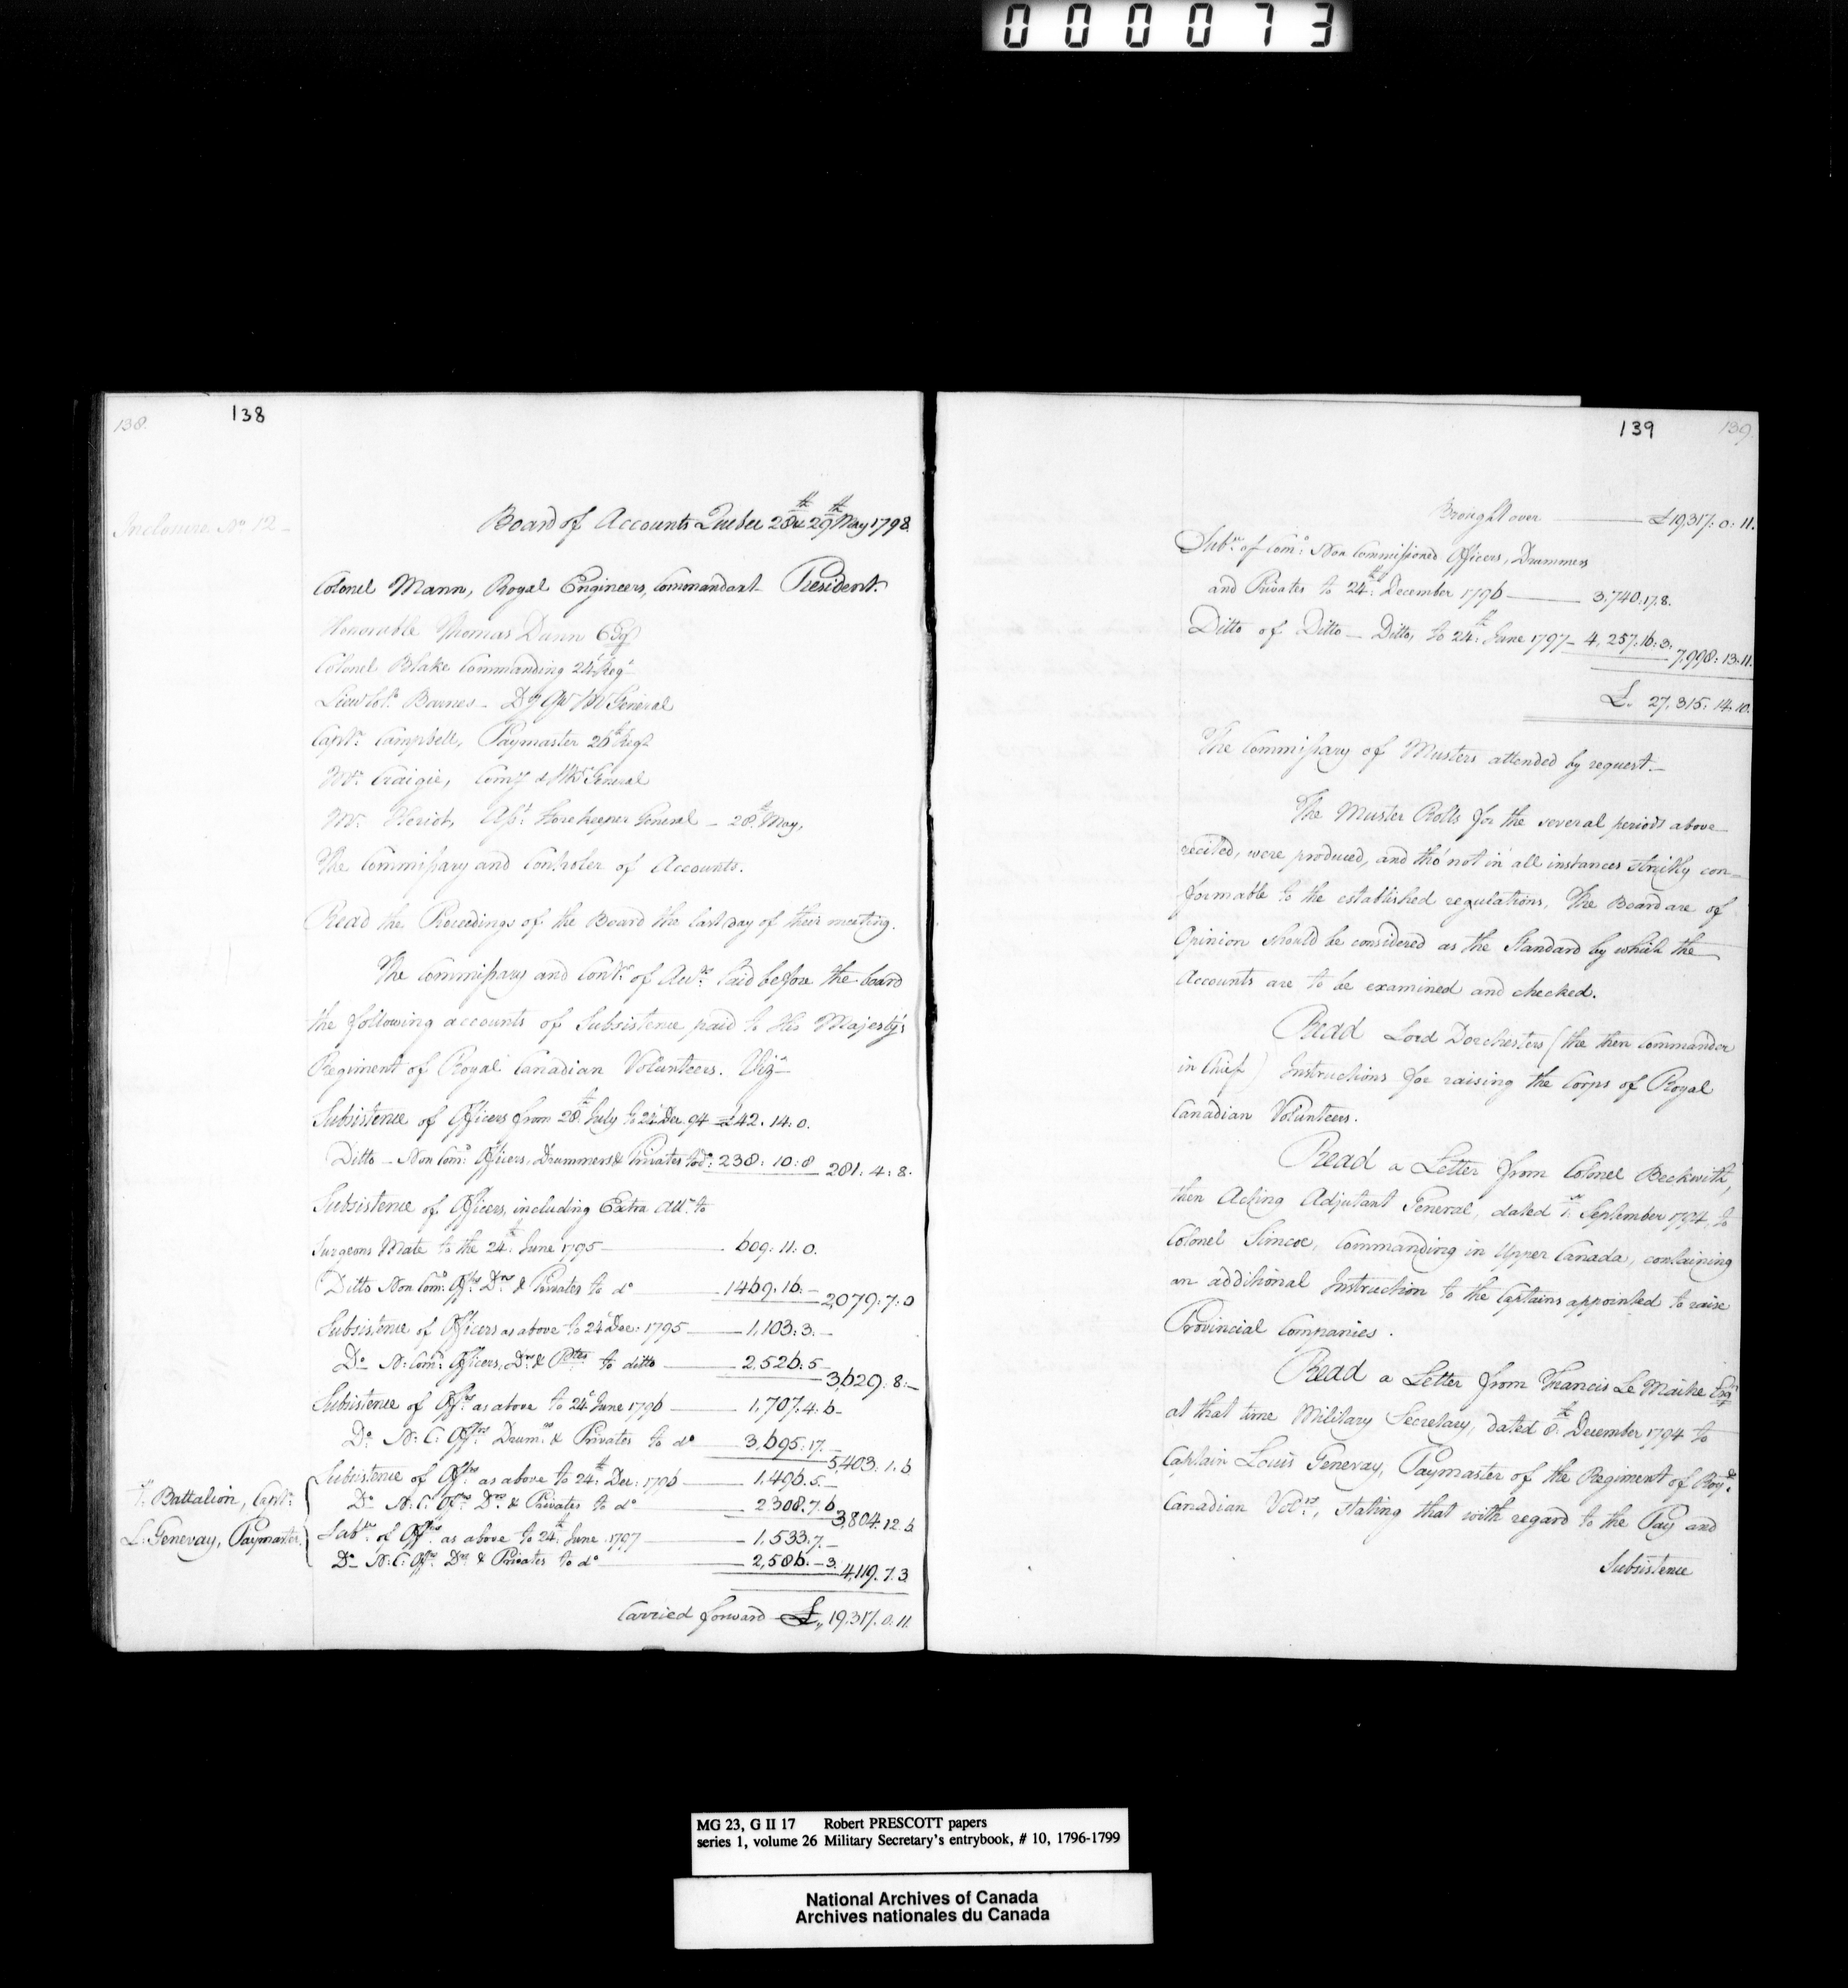 000073
138. 138
Inclosure No. 12 -
Board of Accounts Quebec 28th & 29th May 1798.
Colonel Mann, Royal Engineers, Commandant - President.
Honorable Thomas Dunn Esqr
Colonel Blake Commanding 24th Regt
Lieut Colo. Barnes - Dy Qr Mr General
Captn. Campbell, Paymaster 26th Regt
Mr. Craigie, Comy & Stkr General
Mr. Heriot, Asst. Storekeeper General - 28th May,
The Commissary and Controler of Accounts.
Read the Proceedings of the Board the last day of their meeting.
The Commissary and Contr. of Accts. laid before the board
the following accounts of Subsistence paid to His Majesty's
Regiment of Royal Canadian Volunteers. Viz
Subsistence of Officers from 28th July to 24 Dec. 94 £42.14.0.
Ditto - Non Comd. Officers, Drummers & Privates to do: 238:10:8 281:4:8.
Subsistence of Officers, including Extra All. to
Surgeons Mate to the 24th June 1795 - 609:11:0.
Ditto Non Comd. Offrs. Drs. & Privates to do - 1469.16.- 2,079:7:0
Subsistence of Officers as above to 24 Dec: 1795 - 1,103:3.-
Do - N: Comd. Officers, Drs. & Ptes to ditto - 2,526:5- 3,629.8:-
Subsistence of Offrs as above to 24 June 1796 - 1,707.4.6-
Do. N: C: Offrs Drumrs. & Privates to do - 3,695:17.- 5,403:1.6
1st. Battalion, Captn. Subsistence of Offrs as above to 24th Dec: 1796 - 1,496.5.-
Do - N: C: Offrs Drs. & Privates to do - 2308.7.6 3,804.12.6
L: Genevay, Paymaster. Subce. of Offrs as above to 24th June. 1797 - 1,533.7.-
Do - N: C: Offrs. Drs & Privates to do - 2,586.-3. 4,119.7.3
Carried forward £,, 19,317.0.11.
139 139.
Brought over - £19,317:0:11.
Subce. of Comd. Non Commissioned Officers, Drummers
and Privates to 24th. December 1796 - 3.740.17.8.
Ditto of Ditto - Ditto, to 24th. June 1797 - 4,257.16:3. 7,998:13.11.
£. 27,315.14.10.
The Commissary of Musters attended by request -
The Muster Rolls for the several periods above
recited, were produced, and tho' not in all instances strictly con=
formable to the established regulations, The Board are of
Opinion should be considered as the Standard by which the
Accounts are to be examined and checked.
Read Lord Dorchesters (the then Commander
in Chief) Instructions for raising the Corps of Royal
Canadian Volunteers.
Read a Letter from Colonel Beckwith,
then Acting Adjutant General, dated 1st. September 1794, to
Colonel Simcoe, Commanding in Upper Canada, containing
an additional Instruction to the Captains appointed to raise
Provincial Companies.
Read a Letter from Francis Le Maitre Esqr
at that time Military Secretary, dated 8th December 1794 to
Captain Louis Genevay, Paymaster of the Regiment of Royl.
Canadian Volrs., stating that with regard to the Pay and
Subsistence
MG 23, G II 17 Robert PRESCOTT papers
series 1, volume 26 Military Secretary's entrybook, # 10, 1796-1799
National Archives of Canada
Archives nationales du Canada